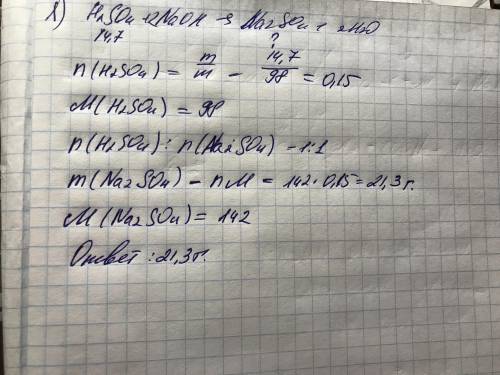 1) H2SO4 + 2NaOH → Na2SO4 + 2H2O
14,7 ?
n(H2SO4) = m/m - 14,7/98 = 0,15
M(H2SO4) = 98
n(H2SO4) : n(Na2SO4) - 1:1
m(Na2SO4) - nM = 142 · 0,15 = 21,3 г.
M(Na2SO4) = 142
Ответ : 21,3 г.